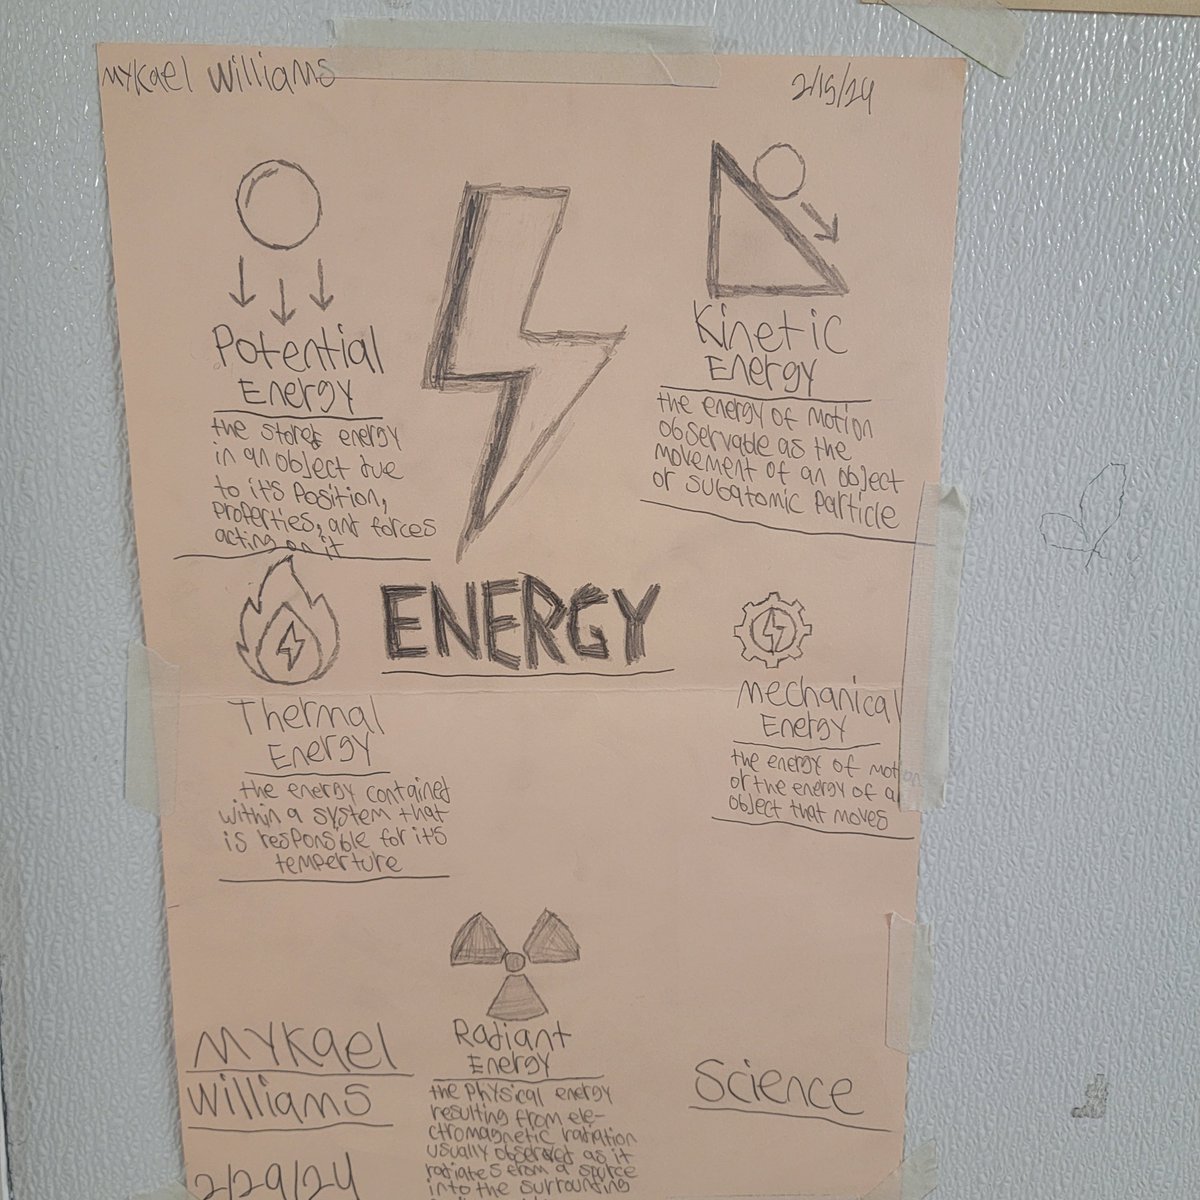 MYKAEL Williams
2/15/24
Potential
ENERGY
the stored energy
in an object due
to it's position,
properties, and forces
acting on it
Kinetic
ENERGY
the energy of motion
observable as the
movement of an object
or subatomic particle
ENERGY
Thermal
ENERGY
the energy contained
within a system that
is responsible for it's
temperture
Mechanical
Energy
the energy of motion
or the energy of a
object that moves
Radiant
ENERGY
the physical energy
resulting from ele-
ctromagnetic radiation
usually observed as it
radiates from a source
into the surrounding
MYKAEL
Williams
2/29/24
Science